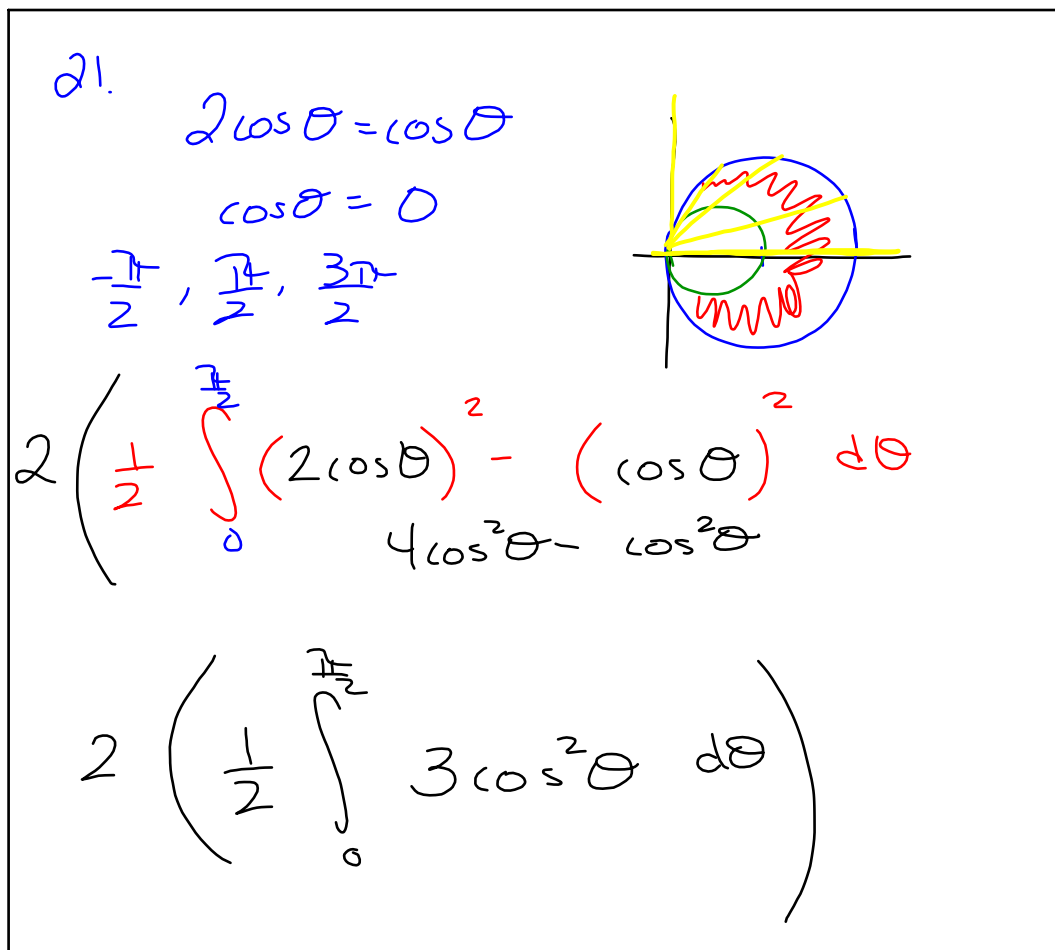 21.
2cosθ = cosθ
cosθ = 0
-π/2, π/2, 3π/2
2(1/2 ∫₀^(π/2) (2cosθ)² - (cosθ)² dθ
4cos²θ - cos²θ
2(1/2 ∫₀^(π/2) 3cos²θ dθ)